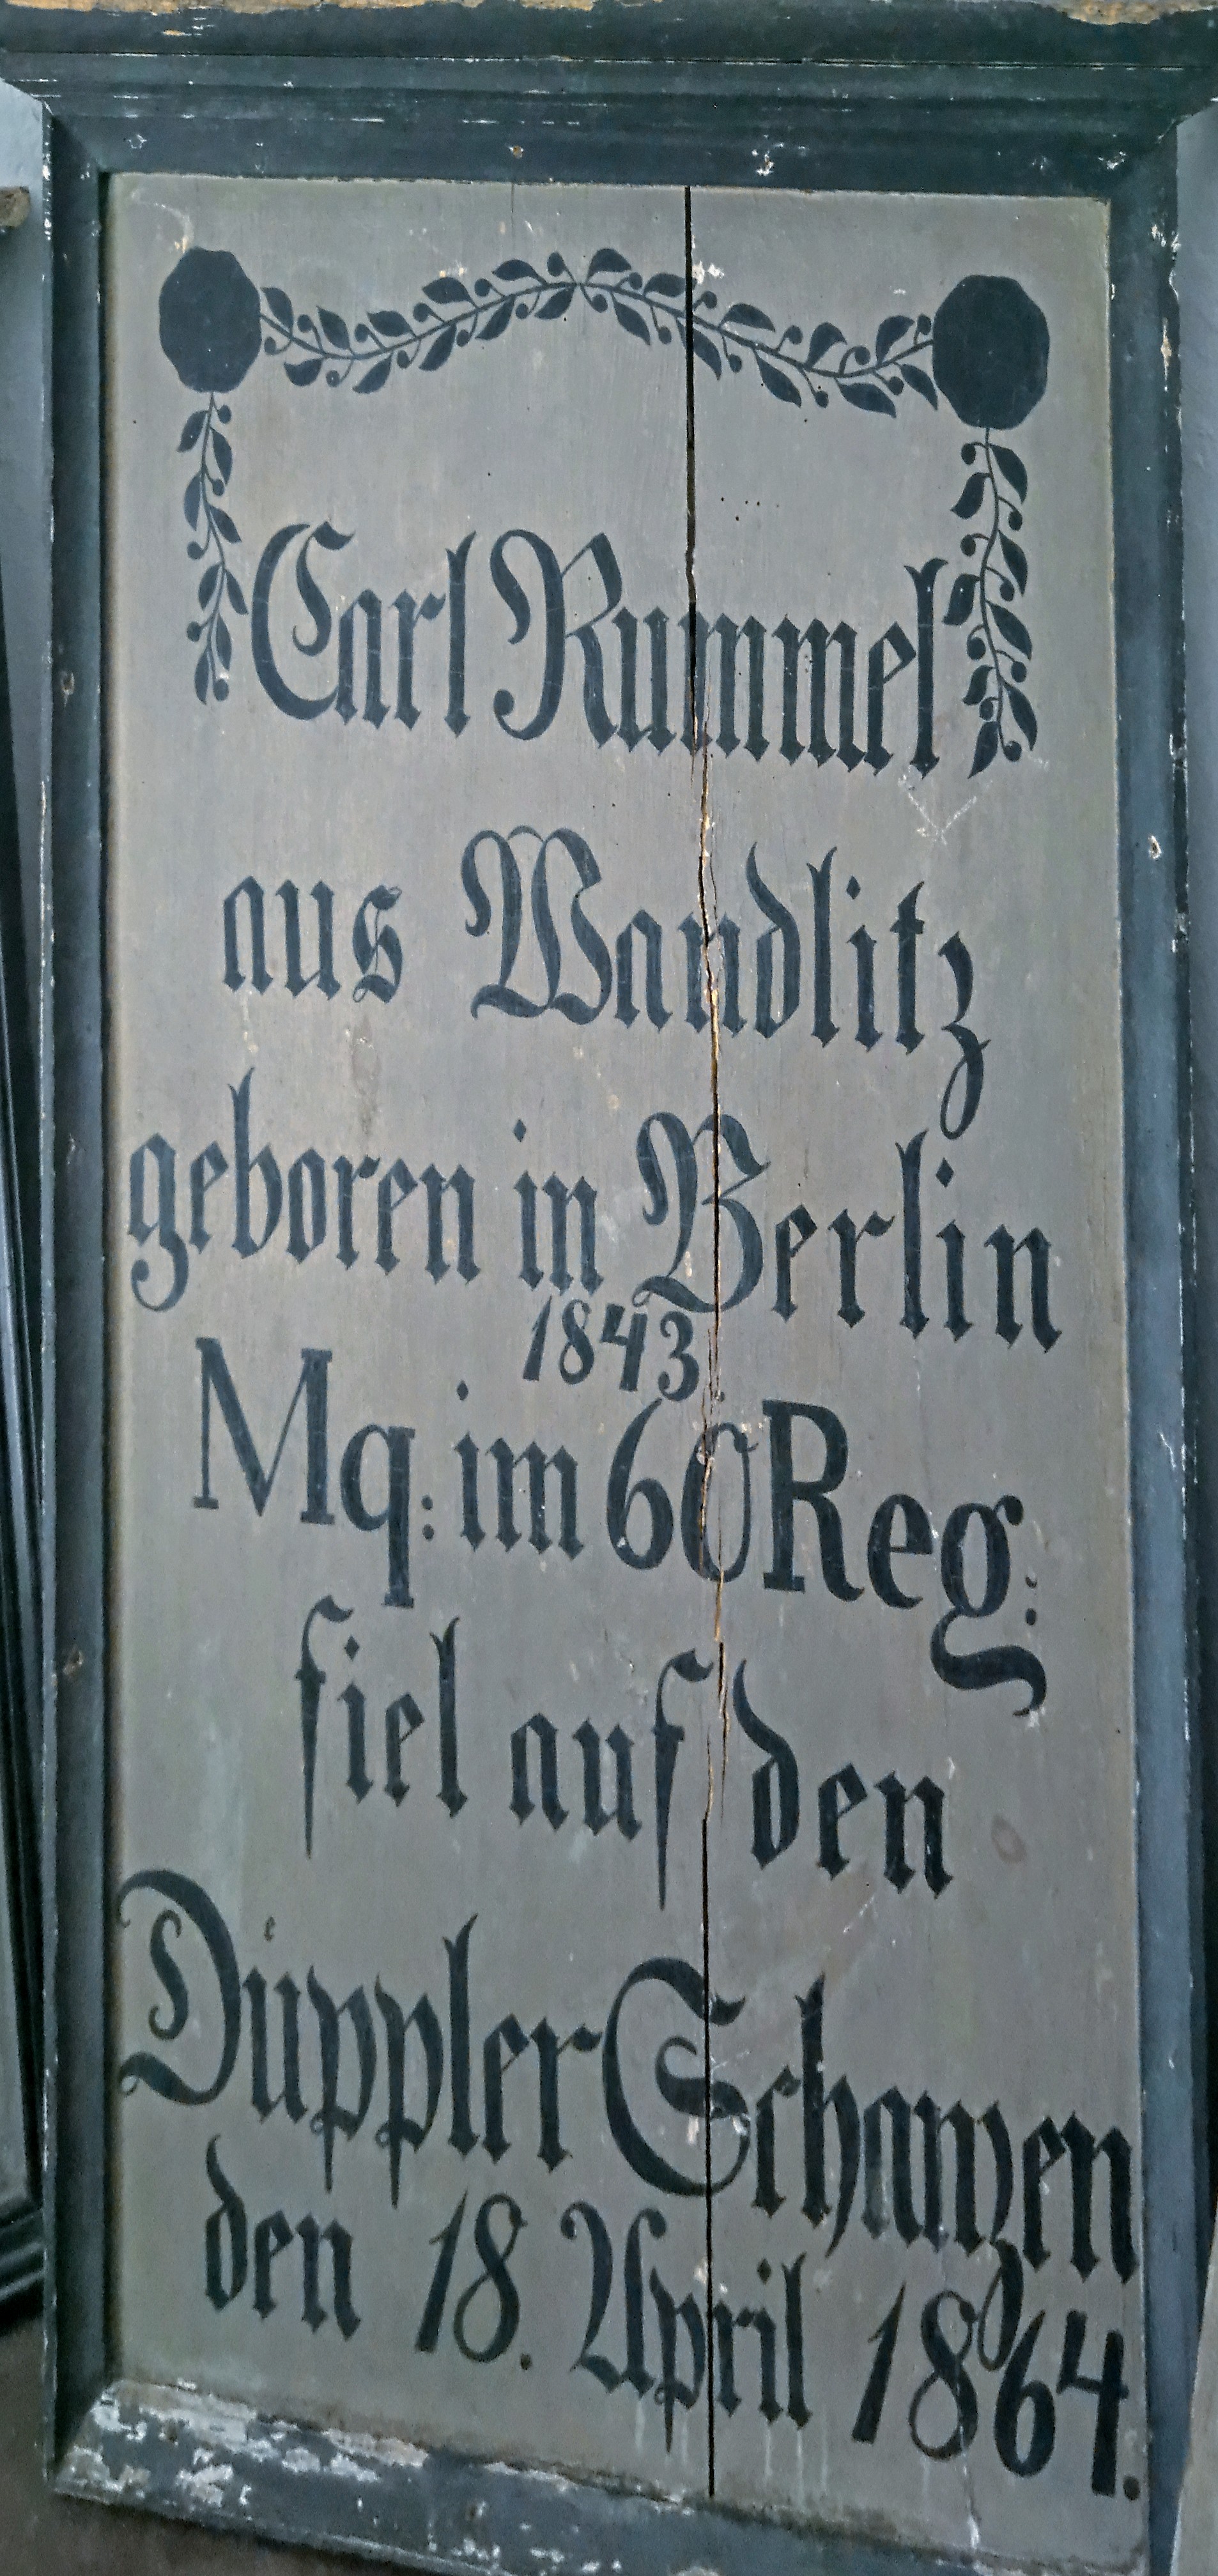 Carl Rummel
aus Wandlitz
geboren in Berlin
1843.
Mq: im 60 Reg:
fiel auf den
Düppler Schanzen
den 18. April 1864.